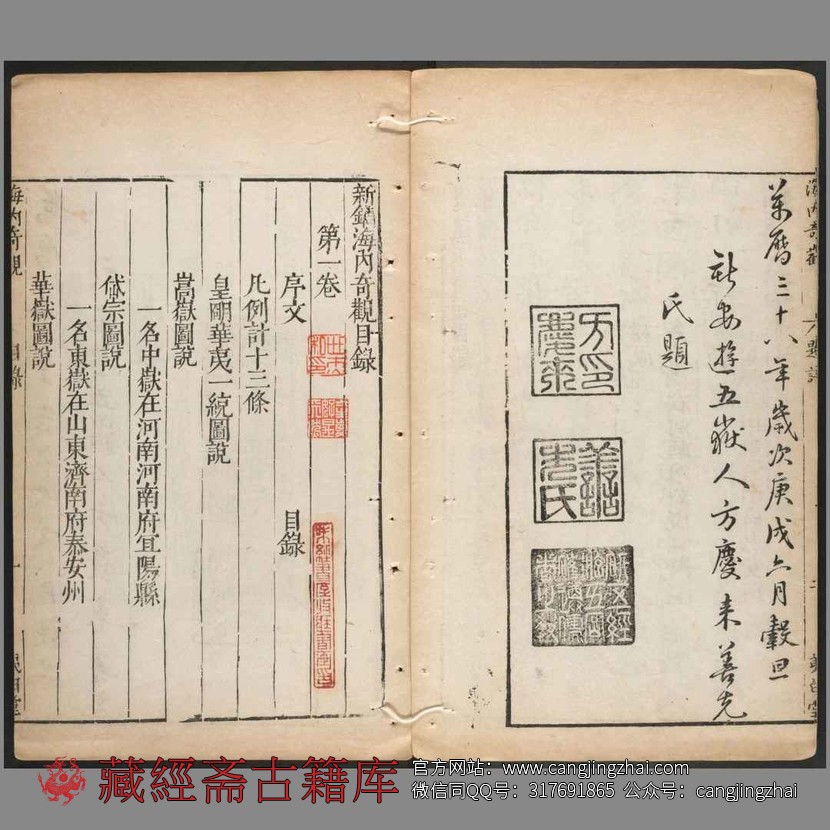 萬曆三十八年歲次庚戌六月穀旦
新安遊五嶽人方慶來善先
氏題
方印
慶來
善
先氏
新鐫海內奇觀目錄
第一卷
序文
目錄
凡例計十三條
皇明華夷一統圖說
嵩嶽圖說
一名中嶽在河南河南府宜陽縣
岱宗圖說
一名東嶽在山東濟南府泰安州
華嶽圖說
海內奇觀
目錄
一
藏經斋古籍库
官方网站：www.cangjingzhai.com
微信同QQ号：317691865 公众号：cangjingzhai